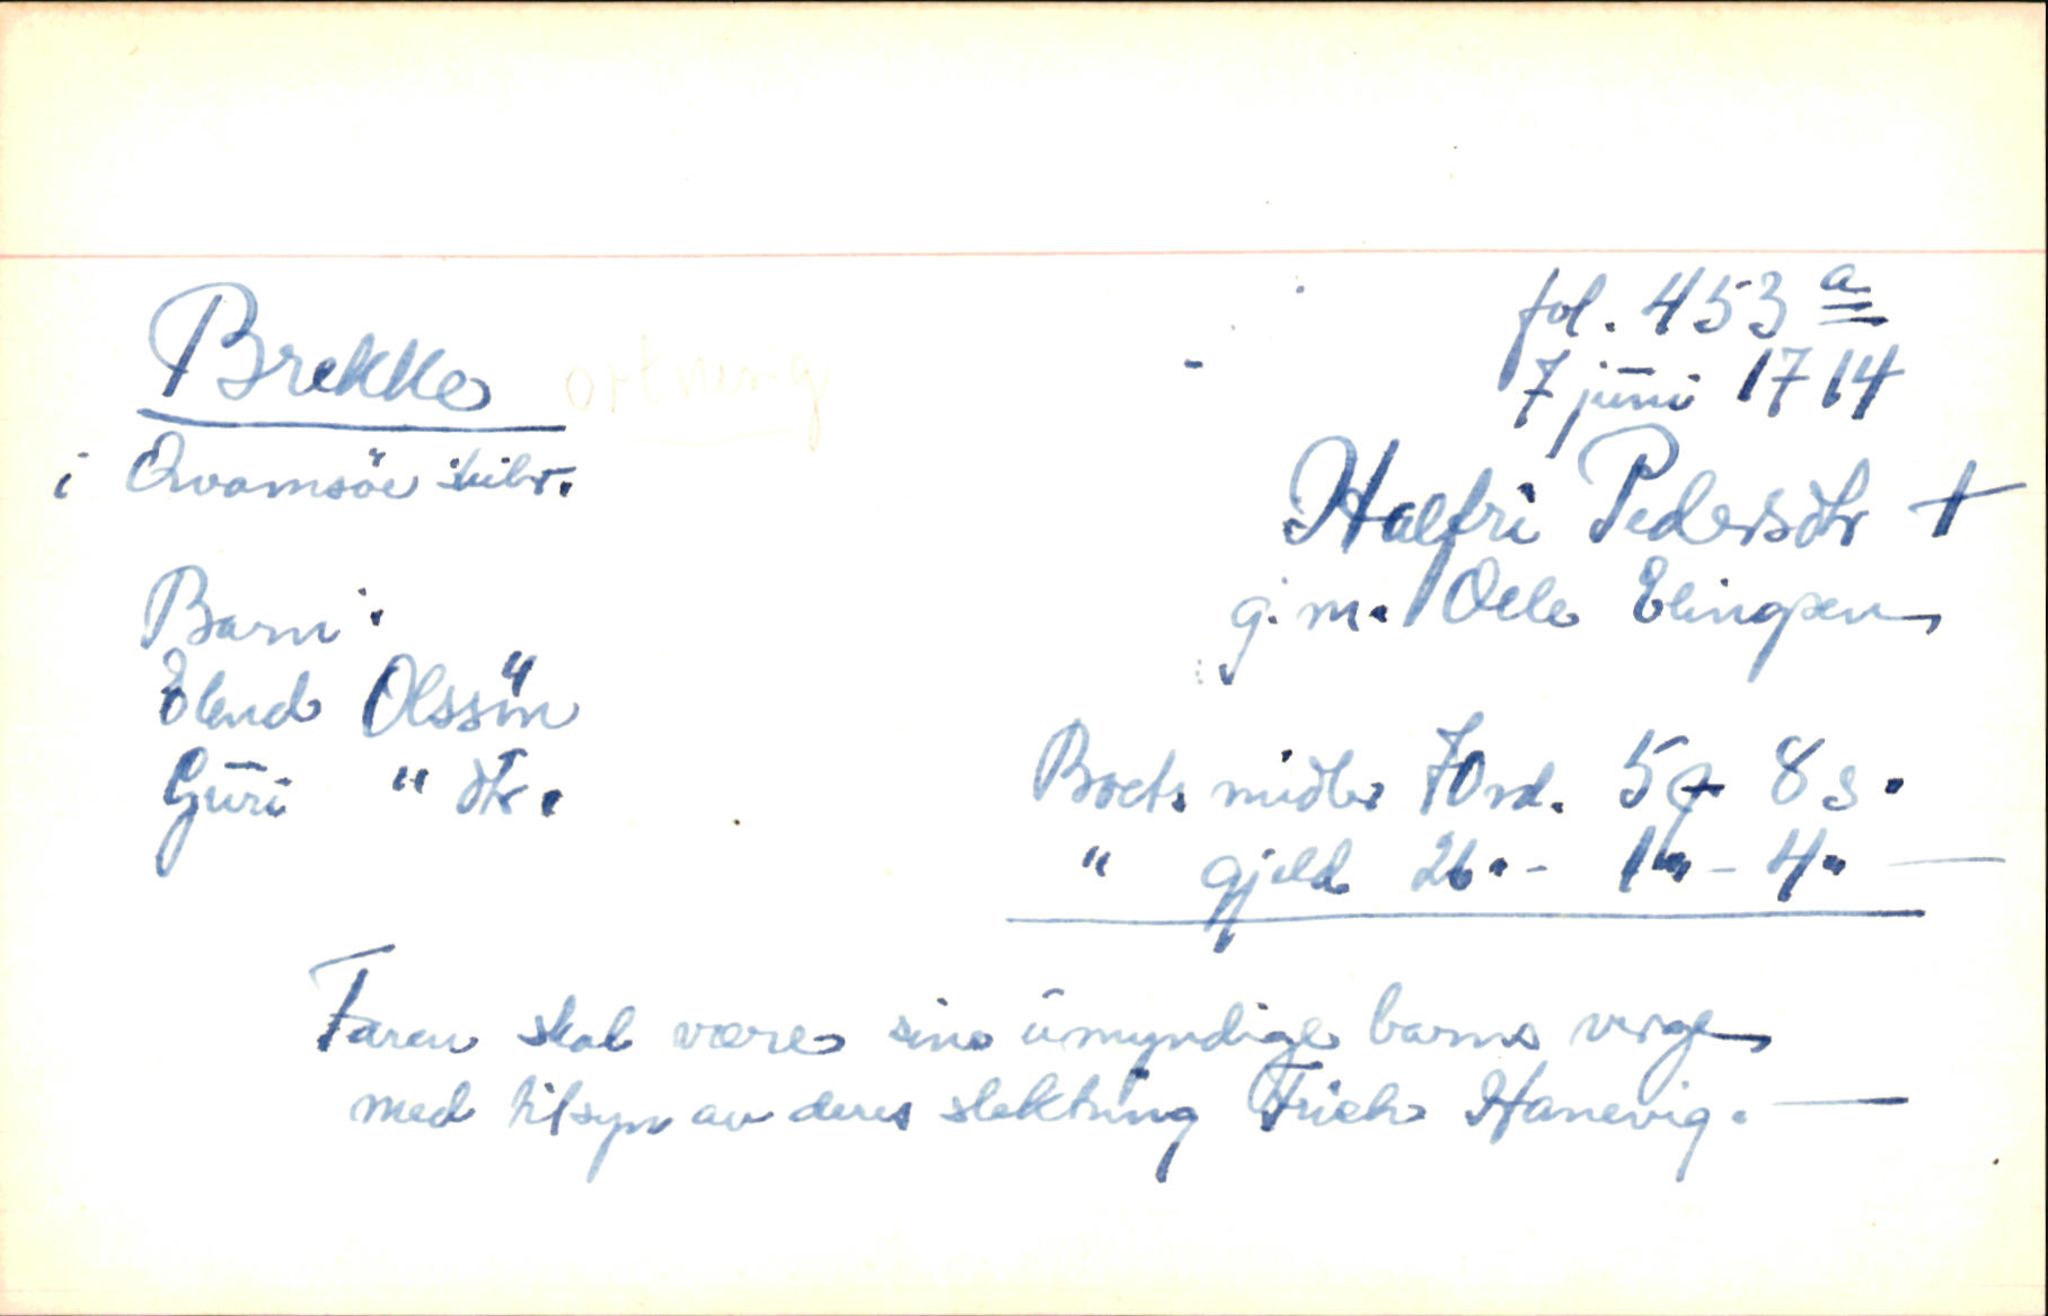 fol. 453 a
Brekke ortnevig
7 juni 1714
i Qvamsøe skibr.
Halfri Pedersdtr +
g. m. Oele Elingsen
Barn:
Elend Olssön
Guri " dtr.
Boets midler 70 rd. 5 8 s.
" gjeld 26 " - 1 " - 4 " —
Faren skal være sine umyndige barns verge
med tilsyn av deres slektning Hanevig. —